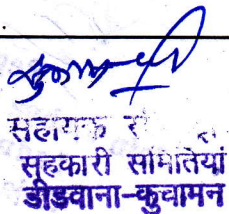 सहायक
सहकारी समितियां
डीडवाना-कुचामन